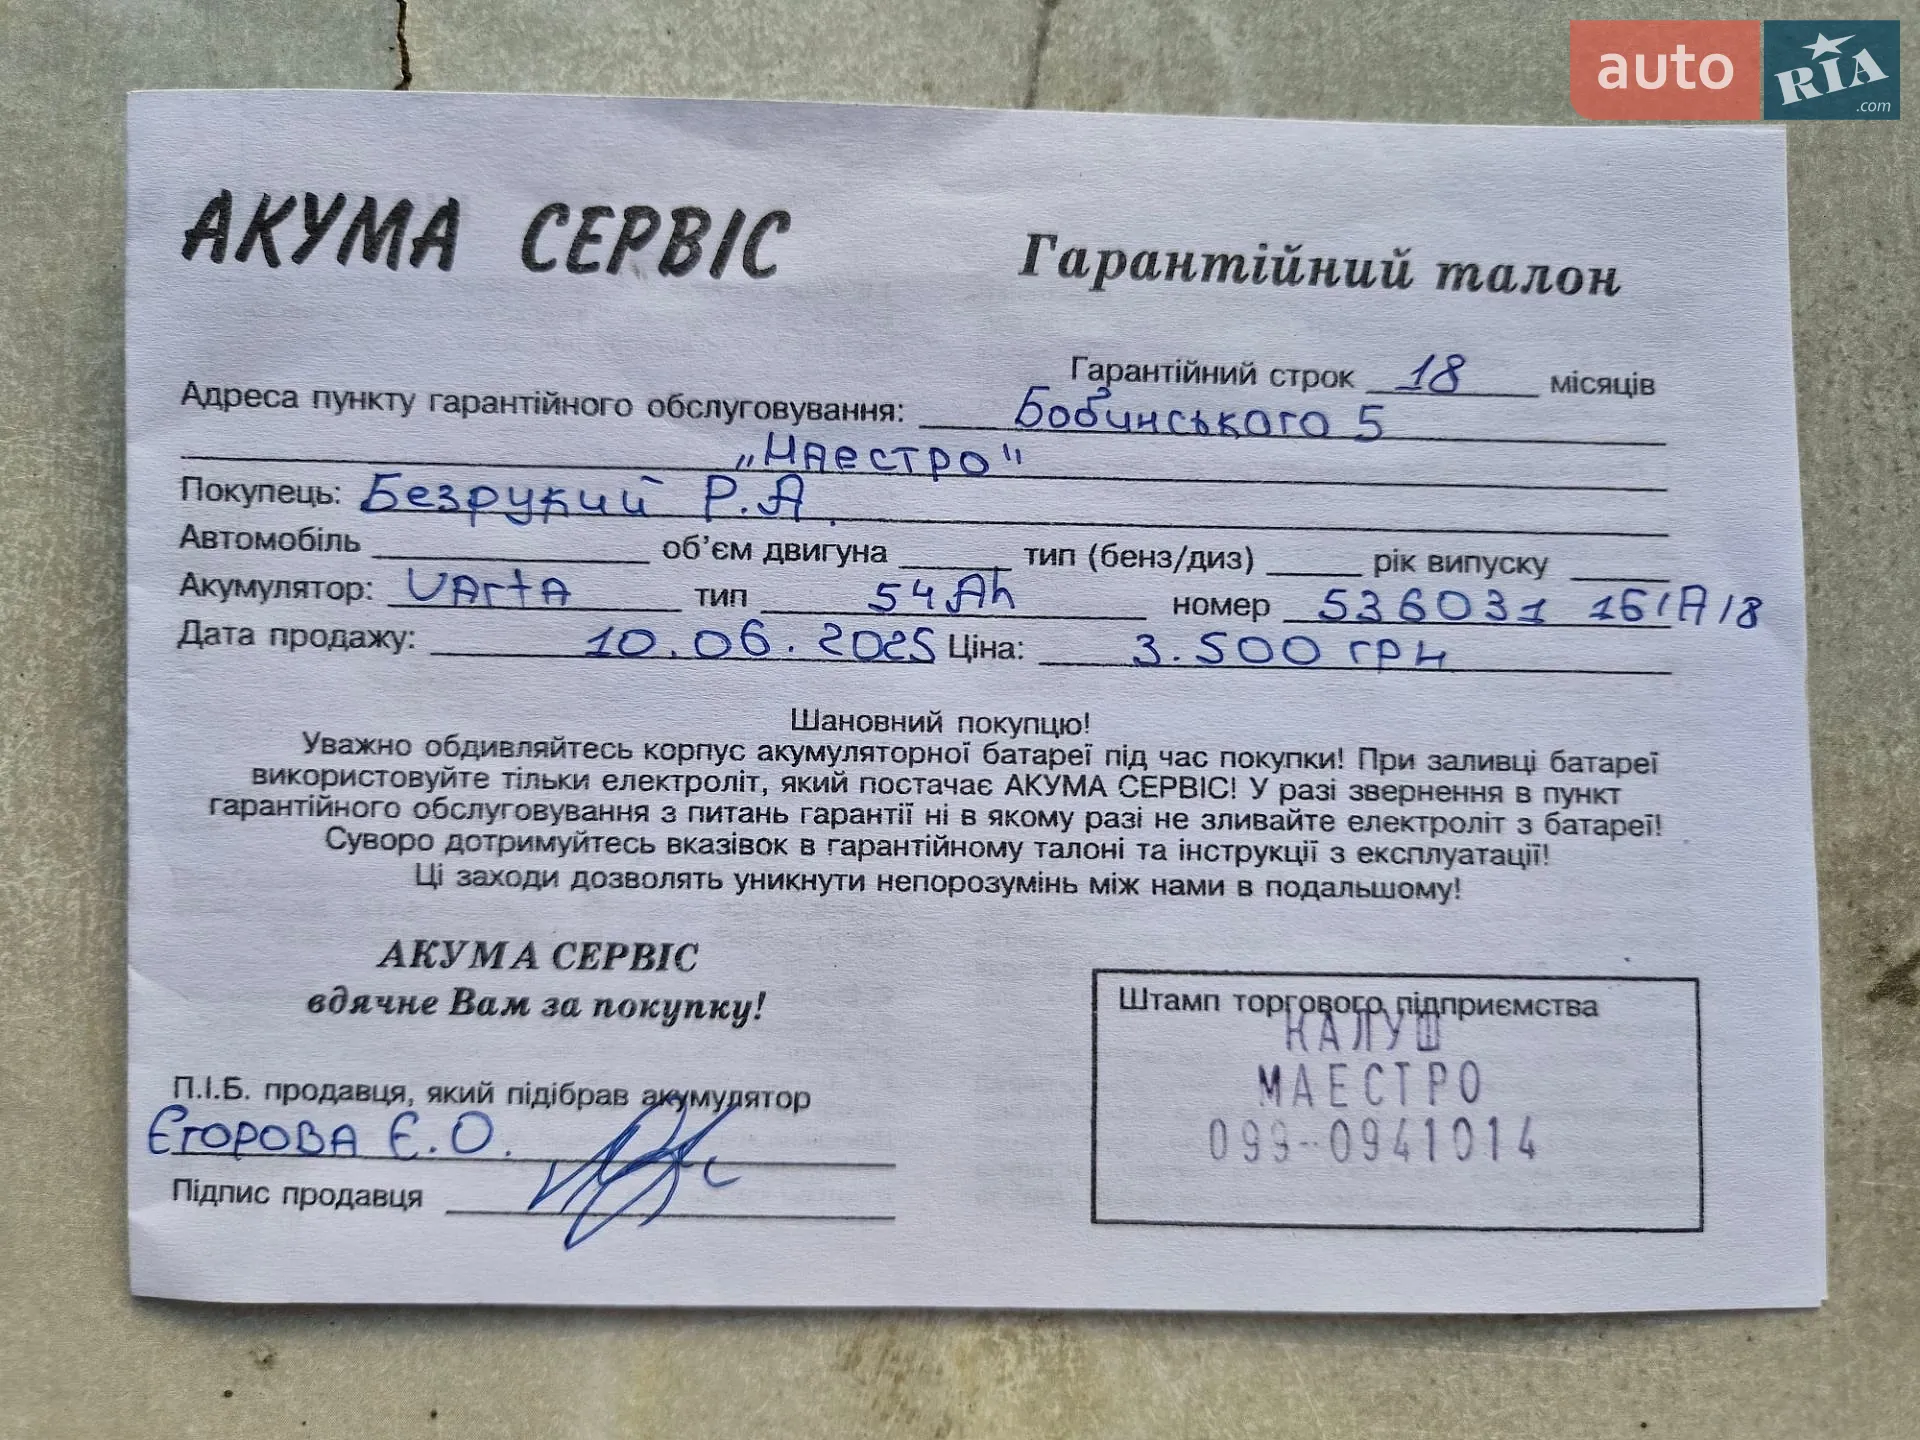 auto RIA .com
АКУМА СЕРВІС
Гарантійний талон
Гарантійний строк 18 місяців
Адреса пункту гарантійного обслуговування: Бобинського 5
„Маестро"
Покупець: Безрукий Р.А.
Автомобіль об'єм двигуна тип (бенз/диз) рік випуску
Акумулятор: VArtA тип 54Ah номер 536031 161A18
Дата продажу: 10.06.2025 Ціна: 3.500 грн
Шановний покупцю!
Уважно обдивляйтесь корпус акумуляторної батареї під час покупки! При заливці батареї
використовуйте тільки електроліт, який постачає АКУМА СЕРВІС! У разі звернення в пункт
гарантійного обслуговування з питань гарантії ні в якому разі не зливайте електроліт з батареї!
Суворо дотримуйтесь вказівок в гарантійному талоні та інструкції з експлуатації!
Ці заходи дозволять уникнути непорозумінь між нами в подальшому!
АКУМА СЕРВІС
вдячне Вам за покупку!
П.І.Б. продавця, який підібрав акумулятор
Єгорова Є.О.
Підпис продавця
Штамп торгового підприємства
КАЛУШ
МАЕСТРО
099-0941014